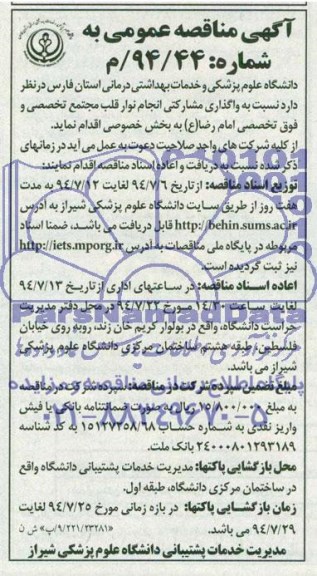 آگهی مناقصه عمومی به
شماره: ۹۴/۴۴/م
دانشگاه علوم پزشکی و خدمات بهداشتی درمانی استان فارس در نظر
دارد نسبت به واگذاری مشارکتی انجام نوار قلب مجتمع تخصصی و
فوق تخصصی امام رضا(ع) به بخش خصوصی اقدام نماید.
از کلیه شرکت های واجد صلاحیت دعوت به عمل می آید در زمانهای
ذکر شده نسبت به دریافت و اعاده اسناد مناقصه اقدام نمایند:
توزیع اسناد مناقصه: از تاریخ ۹۴/۷/۶ لغایت ۹۴/۷/۱۲ به مدت
هفت روز از طریق سایت دانشگاه علوم پزشکی شیراز به آدرس
http://behin.sums.ac.ir قابل دریافت می باشد، ضمنا اسناد
مربوطه در پایگاه ملی مناقصات به آدرس http://iets.mporg.ir
نیز ثبت گردیده است.
اعاده اسناد مناقصه: در ساعتهای اداری از تاریخ ۹۴/۷/۱۳
لغایت ساعت ۱۴/۳۰ مورخ ۹۴/۷/۲۲ در محل دفتر مدیریت
حراست دانشگاه، واقع در بولوار کریم خان زند، روبه روی خیابان
فلسطین، طبقه هشتم ساختمان مرکزی دانشگاه علوم پزشکی
شیراز می باشد.
مبلغ تضمین سپرده شرکت در مناقصه: سپرده شرکت در مناقصه
به مبلغ ۱۵/۸۰۰/۰۰۰ ریال به صورت ضمانتنامه بانکی یا فیش
واریز نقدی به شماره حساب ۱۵۱۲۷۲۵۸/۹۸ به کد شناسه
۲۴۰۰۰۸۰۱۲۹۳۱۸۹ بانک ملت.
محل بازگشایی پاکتها: مدیریت خدمات پشتیبانی دانشگاه واقع
در ساختمان مرکزی دانشگاه، طبقه اول.
زمان بازگشایی پاکتها: در بازه زمانی مورخ ۹۴/۷/۲۵ لغایت
۹۴/۷/۲۹ می باشد.
مدیریت خدمات پشتیبانی دانشگاه علوم پزشکی شیراز
ParsNamadData
۰۲۱-۸۸۳۴۹۶۷۰-۵